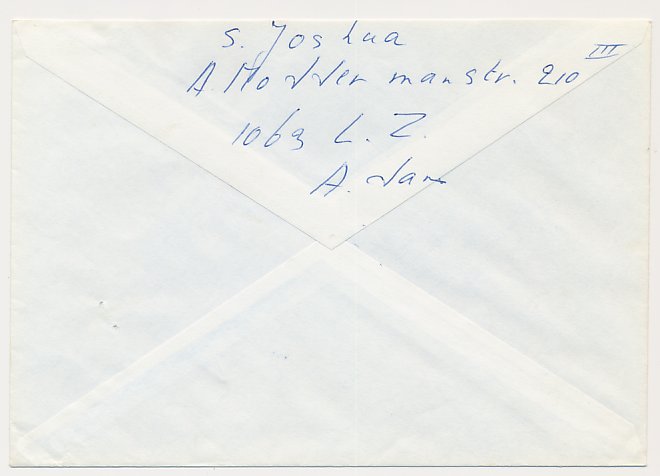 S. Joshua
A. Moddermanstr. 210 III
1063 L.Z.
A.dam